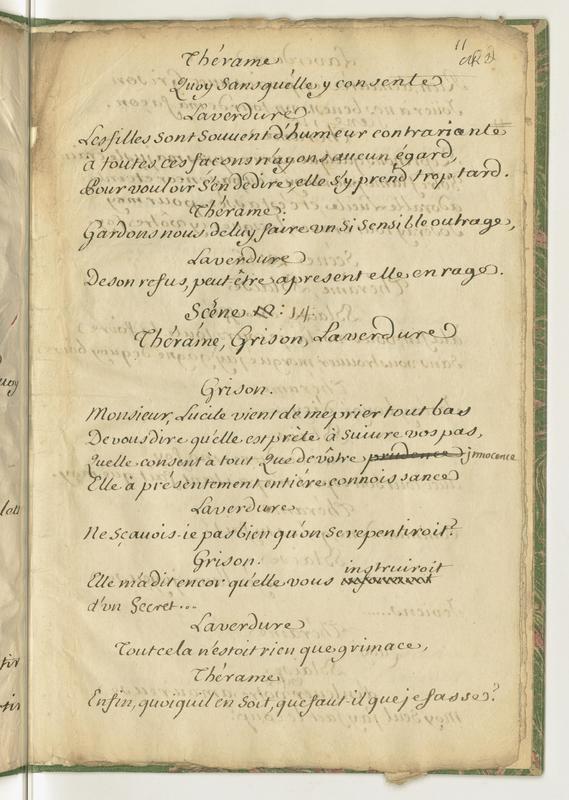 11
Thérame
Quoy sans qu'elle y consente
Laverdure
Les filles sont souvent d'humeur contrariante
à toutes ces facons n'ayons aucun égard,
Pour vouloir s'en dedire, elle s'y prend trop tard.
Thérame.
Gardons nous de luy faire un si sensible outrage,
Laverdure
De son refus, peut être apresent elle enrage.
Scéne 12: 14
Thérame, Grison, Laverdure
Grison.
Monsieur, Lucile vient de me prier tout bas
De vous dire qu'elle est prête à suivre vos pas,
Qu'elle consent à tout Que de vôtre prudence innocence
Elle a présentement entiére connoissance
Laverdure
Ne sçavois-ie pas bien qu'on se repentiroit?
Grison.
instruiroit
Elle m'a dit encor qu'elle vous
d'vn Secret...
Laverdure
Tout cela n'estoit rien que grimace,
Thérame
Enfin, quoiqu'il en soit, que faut-il que je fasse?